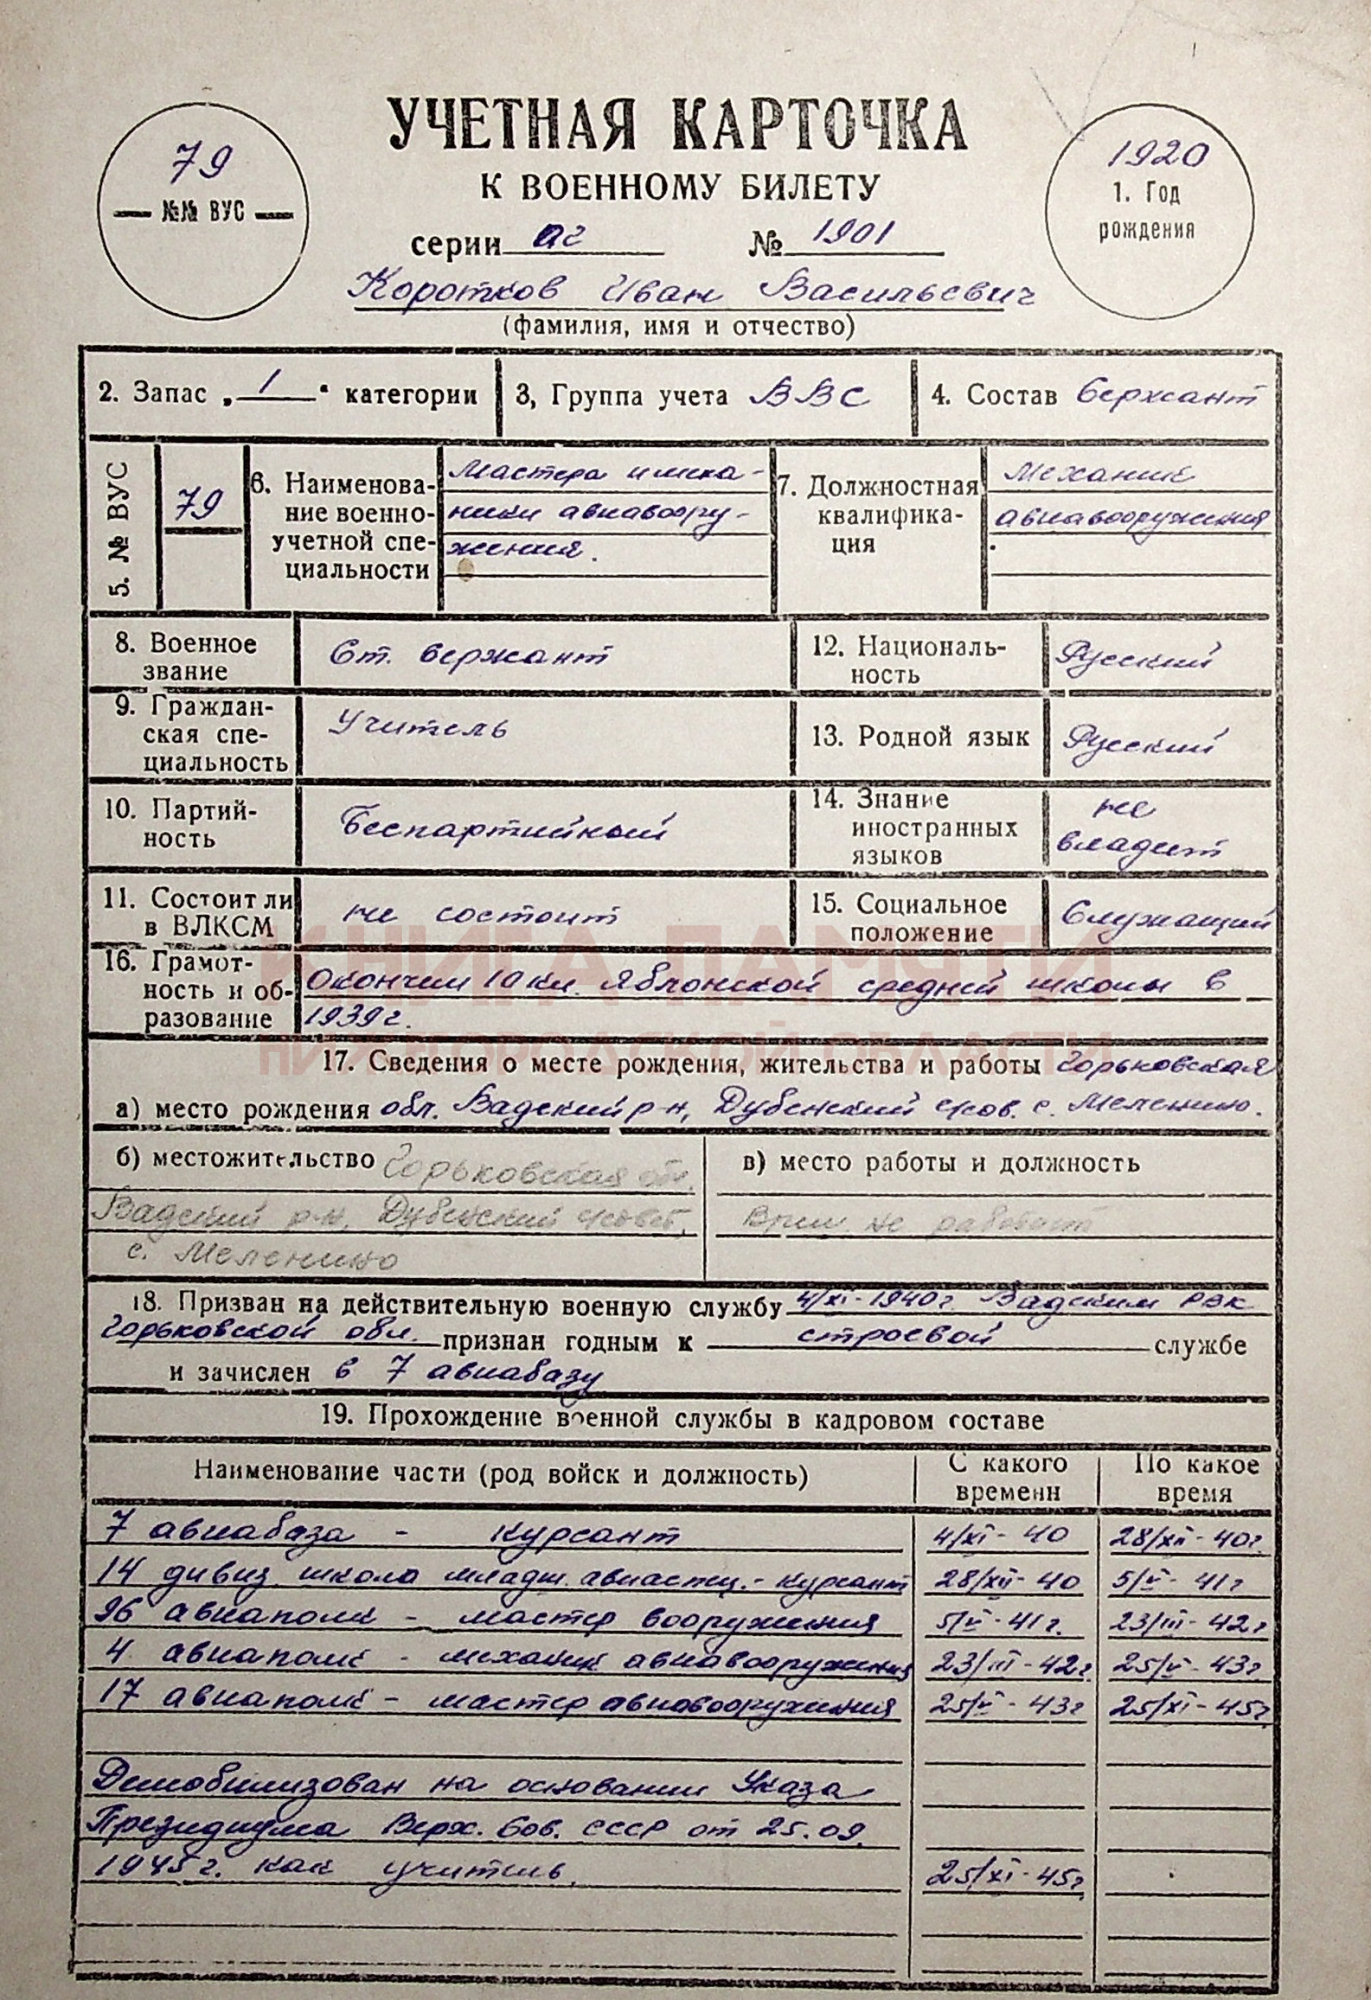 УЧЕТНАЯ КАРТОЧКА
К ВОЕННОМУ БИЛЕТУ
79
№№ ВУС
1920
1. Год
рождения
серии аг № 1901
Коротков Иван Васильевич
(фамилия, имя и отчество)
2. Запас „ 1 “ категории
3, Группа учета ВВС
4. Состав Сержант
5. № ВУС
79
6. Наименова-
ние военно-
учетной спе-
циальности
Мастера и меха-
ники авиавоору-
жения.
7. Должностная
квалифика-
ция
Механик
авиавооружения
8. Военное
звание
Ст. сержант
12. Националь-
ность
Русский
9. Граждан-
ская спе-
циальность
Учитель
13. Родной язык
Русский
10. Партий-
ность
Беспартийный
14. Знание
иностранных
языков
не
владеет
11. Состоит ли
в ВЛКСМ
не состоит
15. Социальное
положение
Служащий
КНИГА ПАМЯТИ
НИЖЕГОРОДСКОЙ ОБЛАСТИ
16. Грамот-
ность и об-
разование
Окончил 10 кл. Яблонской средней школы в
1939 г.
17. Сведения о месте рождения, жительства и работы Горьковская
а) место рождения обл. Вадский р-н, Дубенский с/сов. с. Меленино.
б) местожительство Горьковская обл.
Вадский р-н, Дубенский с/совет,
с. Меленино
в) место работы и должность
Врем. не работает
18. Призван на действительную военную службу 4/XI-1940 г. Вадским РВК
Горьковской обл. признан годным к строевой службе
и зачислен в 7 авиабазу
19. Прохождение военной службы в кадровом составе
Наименование части (род войск и должность)
С какого
времени
По какое
время
7 авиабаза - курсант 4/XI-40 28/XII-40г.
14 дивиз. школа младш. авиаспец. - курсант 28/XII-40 5/V-41г
96 авиаполк - мастер вооружения 5/V-41г. 23/III-42г
4 авиаполк - механик авиавооружения 23/III-42г. 25/V-43г.
17 авиаполк - мастер авиавооружения 25/V-43г 25/XI-45г.
Демобилизован на основании Указа
Президиума Верх. Сов. СССР от 25.09.
1945 г. как учитель. 25/XI-45г